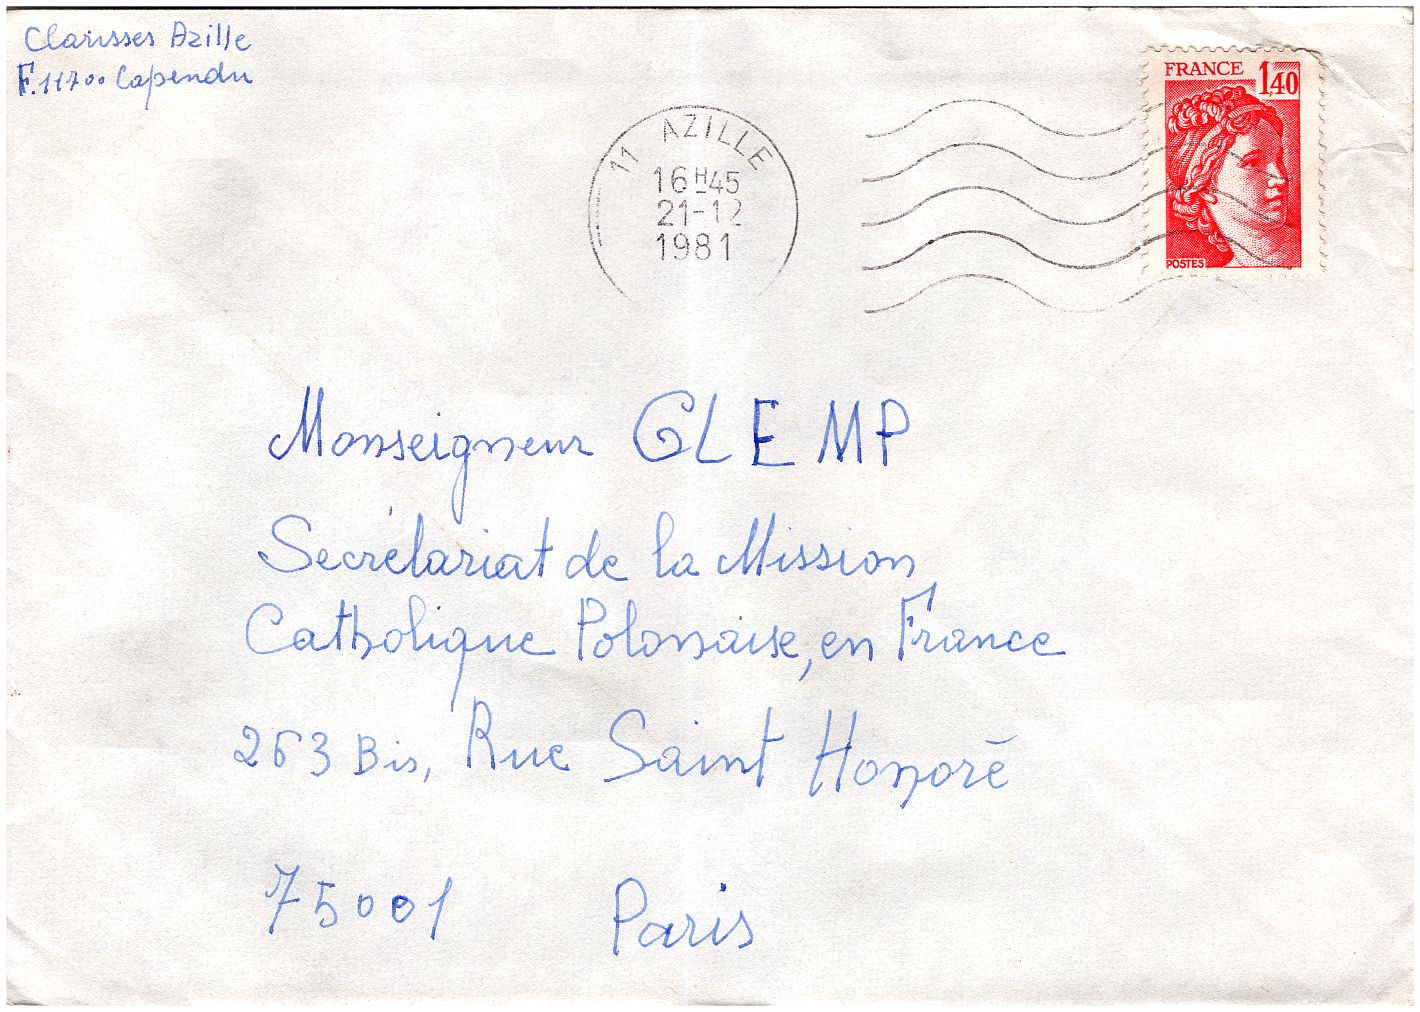 Clarisses Azille
F. 11700 Capendu
11 AZILLE
16H45
21-12
1981
FRANCE 1,40
POSTES
Monseigneur GLEMP
Secrétariat de la Mission,
Catholique Polonaise, en France
263 Bis, Rue Saint Honoré
75001 Paris